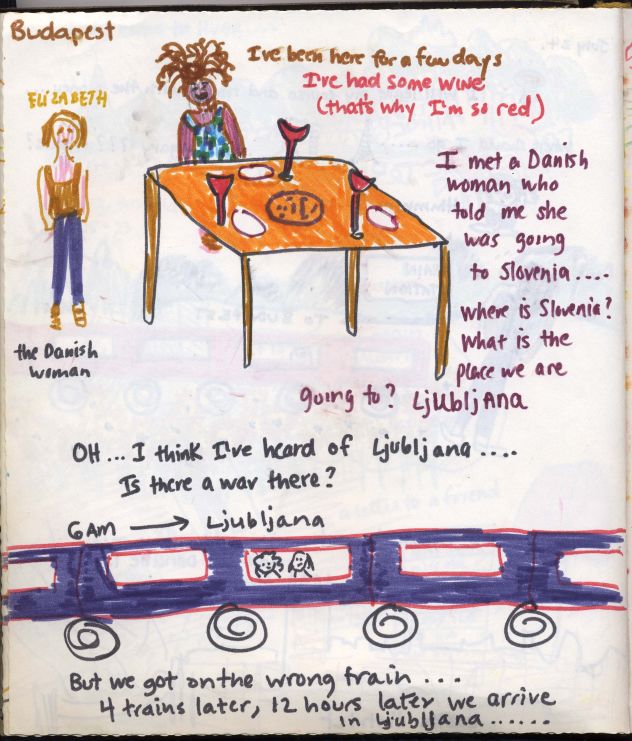 Budapest
I've been here for a few days
I've had some wine
(that's why I'm so red)
ELIZABETH
I met a Danish
woman who
told me she
was going
to Slovenia....
where is Slovenia?
What is the
place we are
going to? Ljubljana
the Danish
woman
OH... I think I've heard of Ljubljana....
Is there a war there?
6AM → Ljubljana
But we got on the wrong train...
4 trains later, 12 hours later we arrive
in Ljubljana......